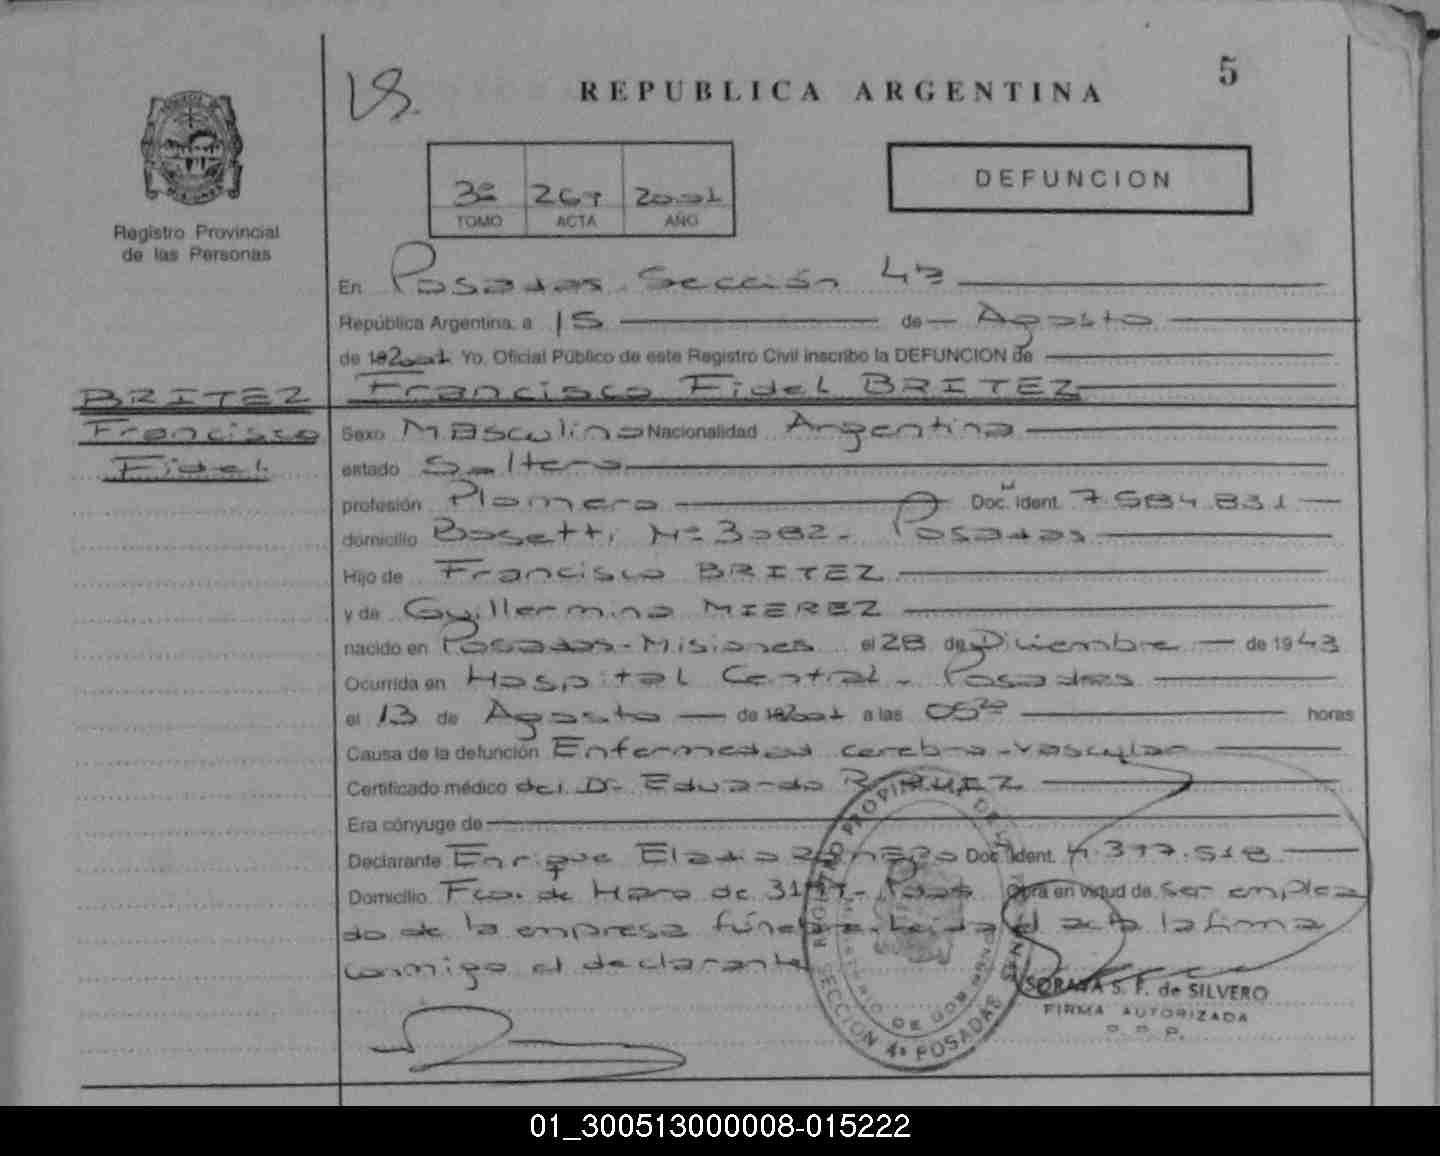 5
REPUBLICA ARGENTINA
DEFUNCION
3º 267 2001
TOMO ACTA AÑO
Registro Provincial
de las Personas
En Posadas Sección 4ª
República Argentina, a 15 de Agosto
de 2001 Yo, Oficial Público de este Registro Civil inscribo la DEFUNCION de
BRITEZ Francisco Fidel BRITEZ
Francisco Sexo Masculino Nacionalidad Argentina
Fidel estado Soltero
profesión Plomero Doc. Ident. 7.584.831
domicilio Bosetti Nº 3082 - Posadas
Hijo de Francisco BRITEZ
y de Guillermina MIEREZ
nacido en Posadas - Misiones el 28 de Diciembre de 1943
Ocurrida en Hospital Central - Posadas
el 13 de Agosto de 2001 a las 05 horas
Causa de la defunción Enfermedad cerebro-vascular
Certificado médico del Dr. Eduardo
Era cónyuge de
Declarante Enrique Eladio Doc. Ident. 4.397.518
Domicilio Fco. de Haro de Pdas Obra en virtud de ser emplea
do de la empresa fúnebre. Leida el acta la firma
conmigo el declarante
REGISTRO PROVINCIAL DE LAS PERSONAS
MINISTERIO DE GOBIERNO
SECCION 4ª POSADAS
SORAYA S. F. de SILVERO
FIRMA AUTORIZADA
01_300513000008-015222